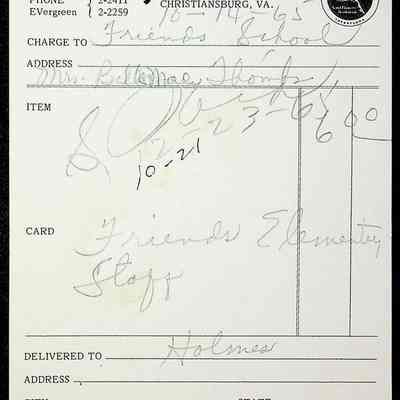 PHONE { 2-2411
EVergreen 2-2259
CHRISTIANSBURG, VA.
10-14-65
CHARGE TO Friends School
ADDRESS
Mrs. Thomas
ITEM
12-23-65
6 00
10-21
CARD Friends Elementry
Staff
DELIVERED TO Holmes
ADDRESS